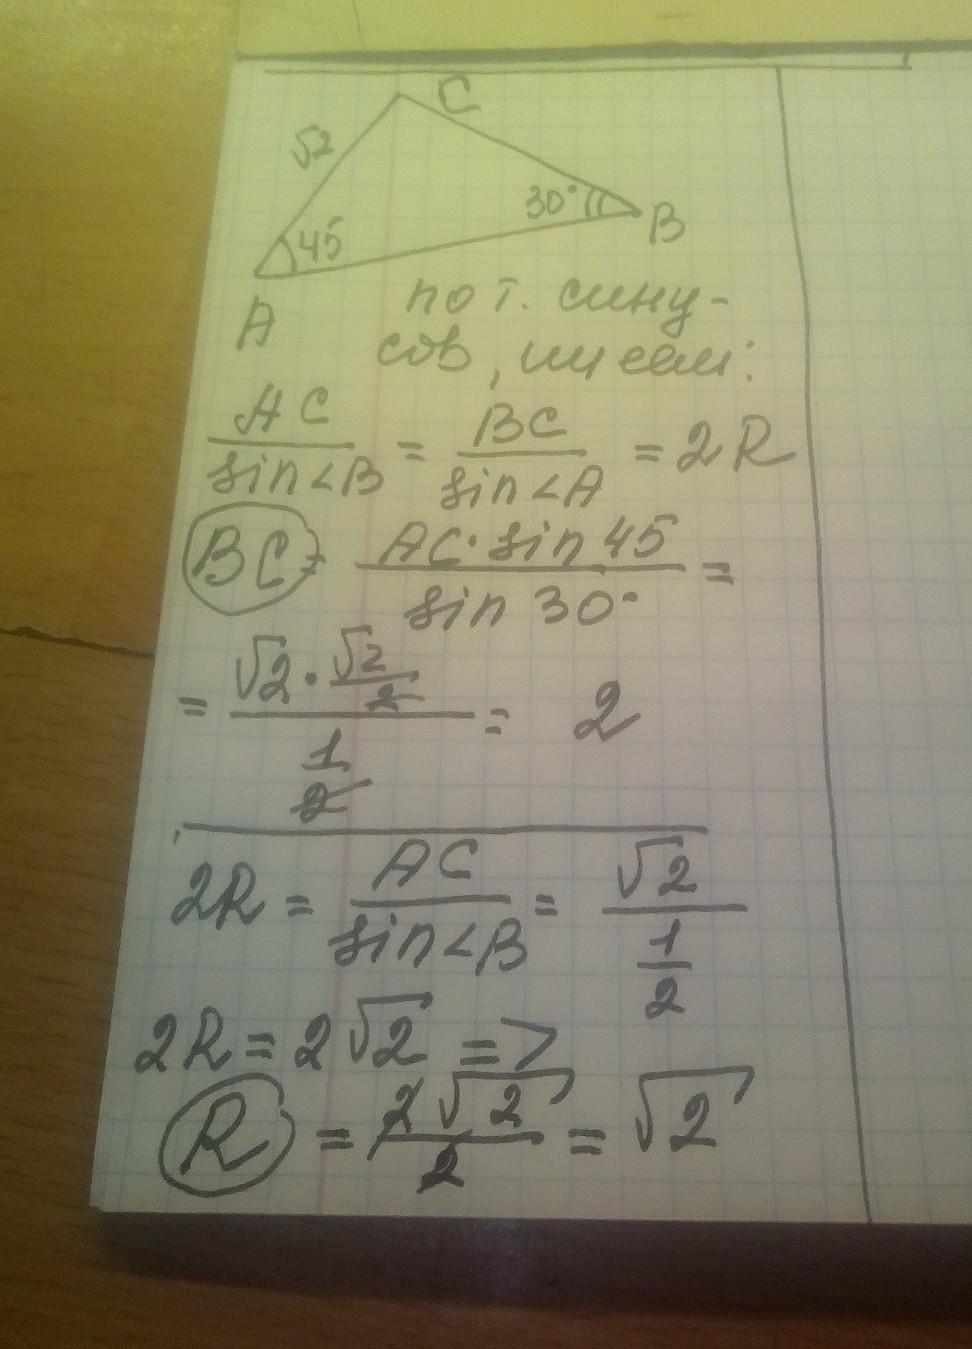 C
√2
30°
B
45
A
по т. сину-
сов, имеем:
AC/sin∠B = BC/sin∠A = 2R
BC = AC·sin 45/sin 30° =
= (√2 · √2/2)/(1/2) = 2
2R = AC/sin∠B = √2/(1/2)
2R = 2√2 =>
R = 2√2/2 = √2